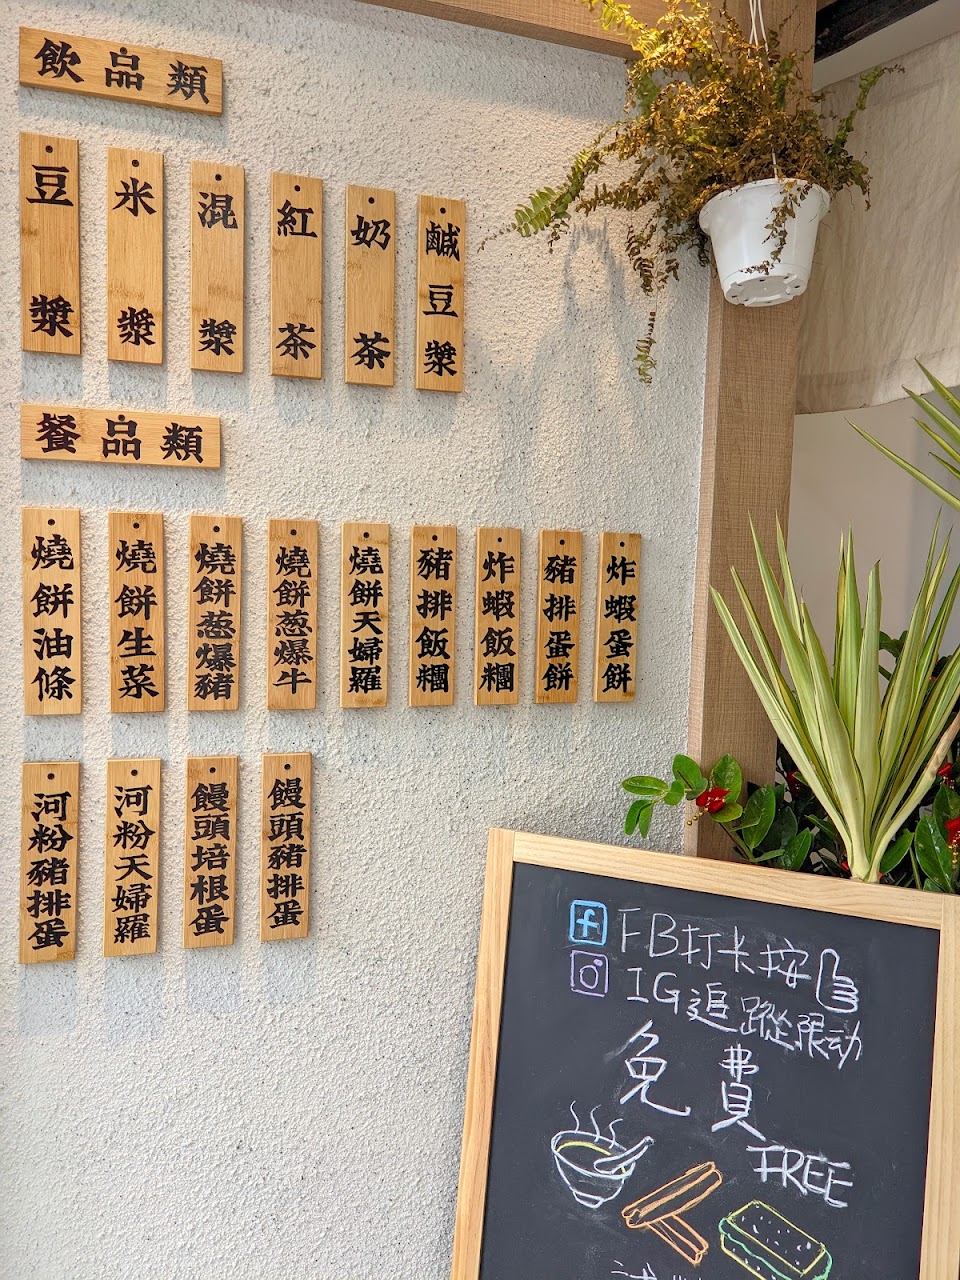 飲品類
豆漿
米漿
混漿
紅茶
奶茶
鹹豆漿
餐品類
燒餅油條
燒餅生菜
燒餅葱爆豬
燒餅葱爆牛
燒餅天婦羅
豬排飯糰
炸蝦飯糰
豬排蛋餅
炸蝦蛋餅
河粉豬排蛋
河粉天婦羅
饅頭培根蛋
饅頭豬排蛋
f FB打卡按
IG追蹤限动
免費
FREE